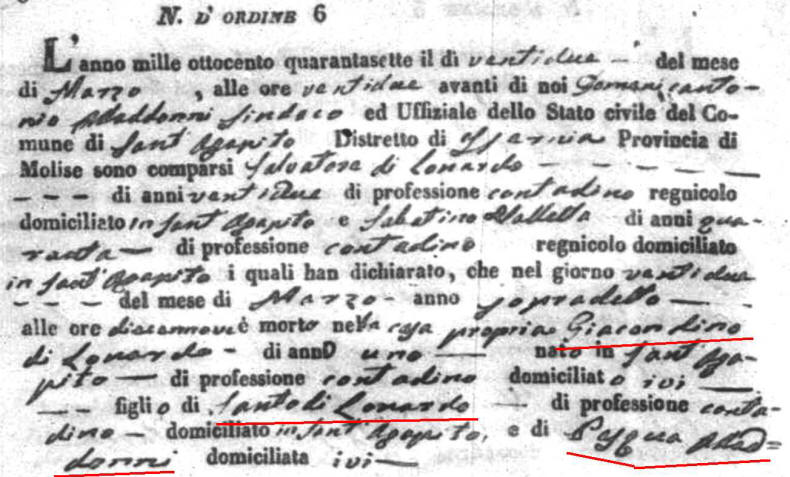 N. D' ORDINE 6
L'anno mille ottocento quarantasette il dì ventidue — del mese
di Marzo, alle ore ventidue avanti di noi Domenicanto-
nio Sindaco ed Uffiziale dello Stato civile del Co-
mune di Sant'Agapito Distretto di Isernia Provincia di
Molise sono comparsi Salvatore di Lonardo — — — — —
— — — di anni ventidue di professione contadino regnicolo
domiciliato in Sant'Agapito e Sabatino Valletta di anni qua-
ranta — di professione contadino regnicolo domiciliato
in Sant'Agapito i quali han dichiarato, che nel giorno ventidue
— — — del mese di Marzo - anno sopradetto — —
alle ore diecannove è morto nella casa propria Giacondino
di Lonardo - di anno uno — nato in Sant'Aga-
pito — di professione contadino domiciliato ivi —
— — figlio di Santo di Lonardo — di professione conta-
dino — domiciliato in Sant'Agapito, e di Pasqua
donni domiciliata ivi —